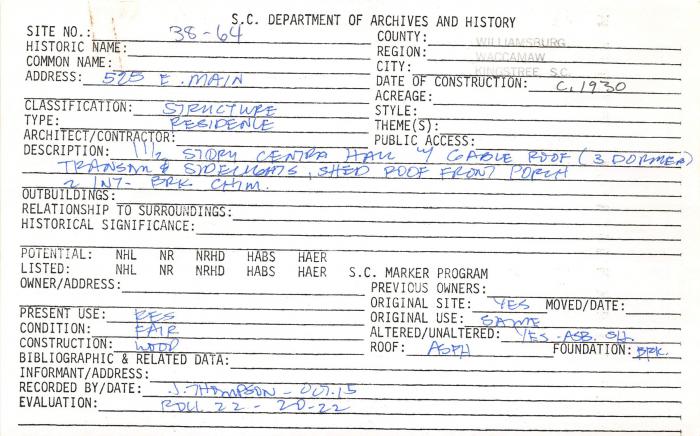 S.C. DEPARTMENT OF ARCHIVES AND HISTORY
SITE NO.: 38-64
HISTORIC NAME:
COMMON NAME:
ADDRESS: 525 E. MAIN
COUNTY: WILLIAMSBURG
REGION: WACCAMAW
CITY: KINGSTREE S.C.
DATE OF CONSTRUCTION: C. 1930
ACREAGE:
CLASSIFICATION: STRUCTURE
TYPE: RESIDENCE
ARCHITECT/CONTRACTOR:
STYLE:
THEME(S):
PUBLIC ACCESS:
DESCRIPTION: 1 1/2 STORY CENTRA HALL W/ GABLE ROOF (3 DORMER)
TRANSOM & SIDELIGHTS, SHED ROOF FRONT PORCH
2 INT- BRK CHIM.
OUTBUILDINGS:
RELATIONSHIP TO SURROUNDINGS:
HISTORICAL SIGNIFICANCE:
POTENTIAL: NHL NR NRHD HABS HAER
LISTED: NHL NR NRHD HABS HAER S.C. MARKER PROGRAM
OWNER/ADDRESS:
PREVIOUS OWNERS:
ORIGINAL SITE: YES MOVED/DATE:
PRESENT USE: RES
ORIGINAL USE: SAME
CONDITION: FAIR
ALTERED/UNALTERED: YES-ASB. SH.
CONSTRUCTION: WOOD
ROOF: ASPH FOUNDATION: BRK.
BIBLIOGRAPHIC & RELATED DATA:
INFORMANT/ADDRESS:
RECORDED BY/DATE: J. THOMPSON - OCT. 15
EVALUATION: ROLL 22 - 20-22